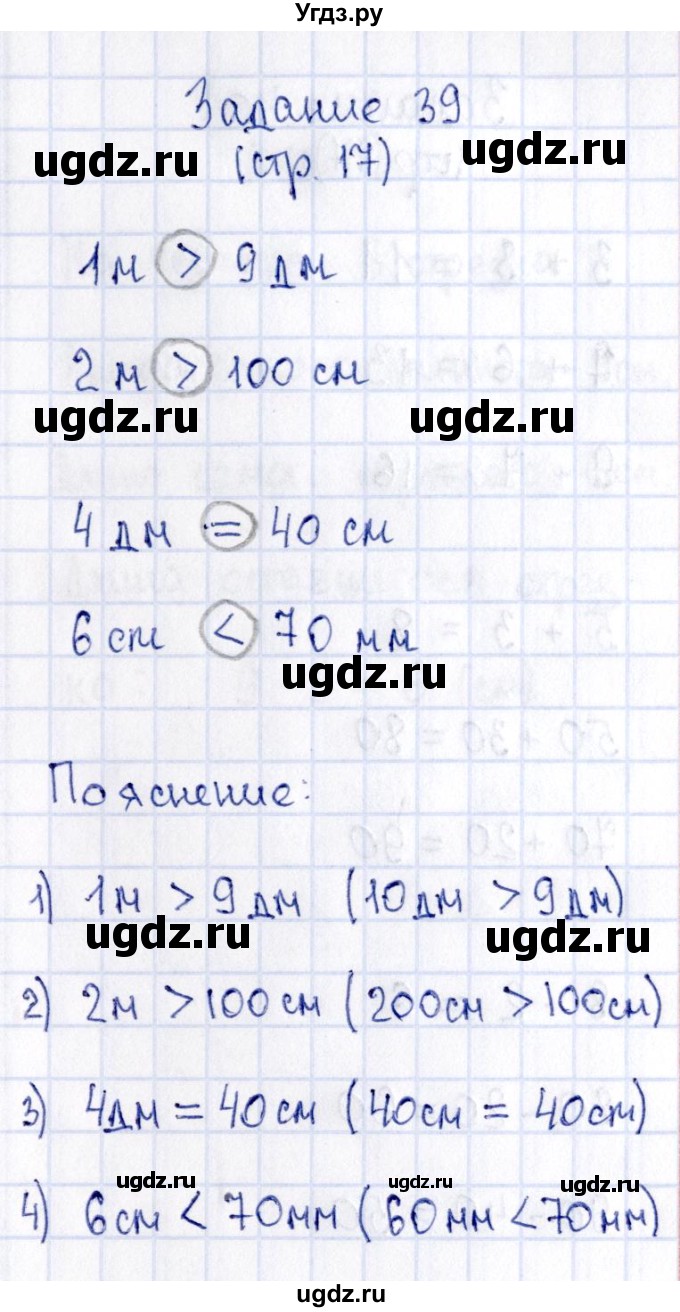 Угдз.ру
Задание 39
ugdz.ru (стр. 17) ugdz.ru
1м > 9 дм
2 м > 100 см
ugdz.ru ugdz.ru
4 дм = 40 см
6 cm < 70 мм
ugdz.ru
Пояснение:
1) 1м > 9 дм (10дм > 9 дм)
ugdz.ru ugdz.ru
2) 2м > 100 см (200см > 100см)
3) 4дм = 40 см (40см = 40cm)
ugdz.ru ugdz.ru ugdz.ru
4) 6 см < 70мм (60мм < 70мм)
ugdz.ru